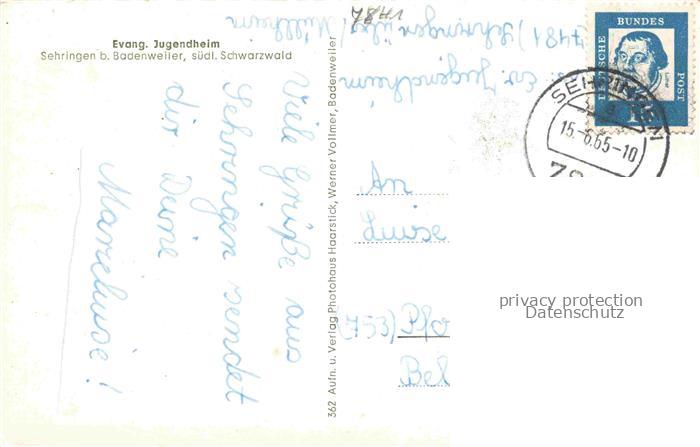 Evang. Jugendheim
Sehringen b. Badenweiler, südl. Schwarzwald
Viele Grüße aus
Sehringen sendet
dir Deine
Mareluise!
362 Aufn. u. Verlag Photohaus Haarstick, Werner Vollmer, Badenweiler
Ev. Jugendheim
7481) Sehringen über/Müllheim
DEUTSCHE
BUNDES
POST
SEHRINGEN
15.-6.65-10
An
Luise
(753) Pfo
Bel
privacy protection
Datenschutz